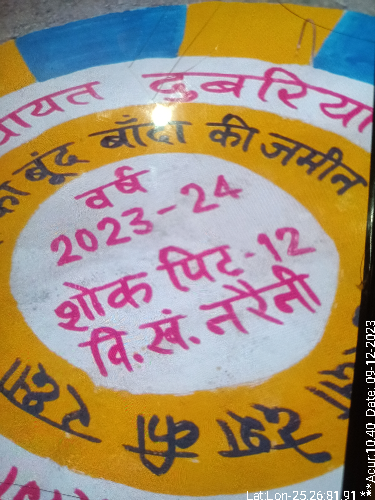 यायत डुबरिया
का बूंद बाँदा की जमीन
वर्ष
2023-24
शोक पिट-12
वि.खं. नरैनी
की
Lat Lon-25 26:81.91
***Acur:10.40 Date: 09-12-2023